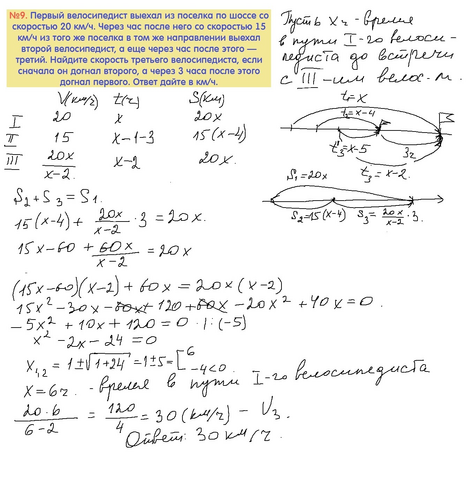 №9. Первый велосипедист выехал из поселка по шоссе со
скоростью 20 км/ч. Через час после него со скоростью 15
км/ч из того же поселка в том же направлении выехал
второй велосипедист, а еще через час после этого —
третий. Найдите скорость третьего велосипедиста, если
сначала он догнал второго, а через 3 часа после этого
догнал первого. Ответ дайте в км/ч.
Пусть x ч - время
в пути I-го велоси-
педиста до встречи
с III-им велос-м.
V(км/ч) t(ч) S(км)
I 20 x 20x
II 15 x-1-3 15(x-4)
III 20x/x-2 x-2 20x.
t₁=x
t₂=x-4
t₃'=x-5
3ч
t₃=x-2.
S₁=20x
S₂=15(x-4) S₃=20x/x-2·3.
S₂+S₃=S₁.
15(x-4)+20x/x-2·3=20x.
15x-60+60x/x-2=20x
(15x-60)(x-2)+60x=20x(x-2)
15x²-30x-60x+120+60x-20x²+40x=0.
-5x²+10x+120=0 |:(-5)
x²-2x-24=0
x₁,₂=1±√1+24=1±5=[6
-4<0.
x=6ч. - время в пути I-го велосипедиста
20·6/6-2=120/4=30(км/ч) - V₃.
Ответ: 30 км/ч.